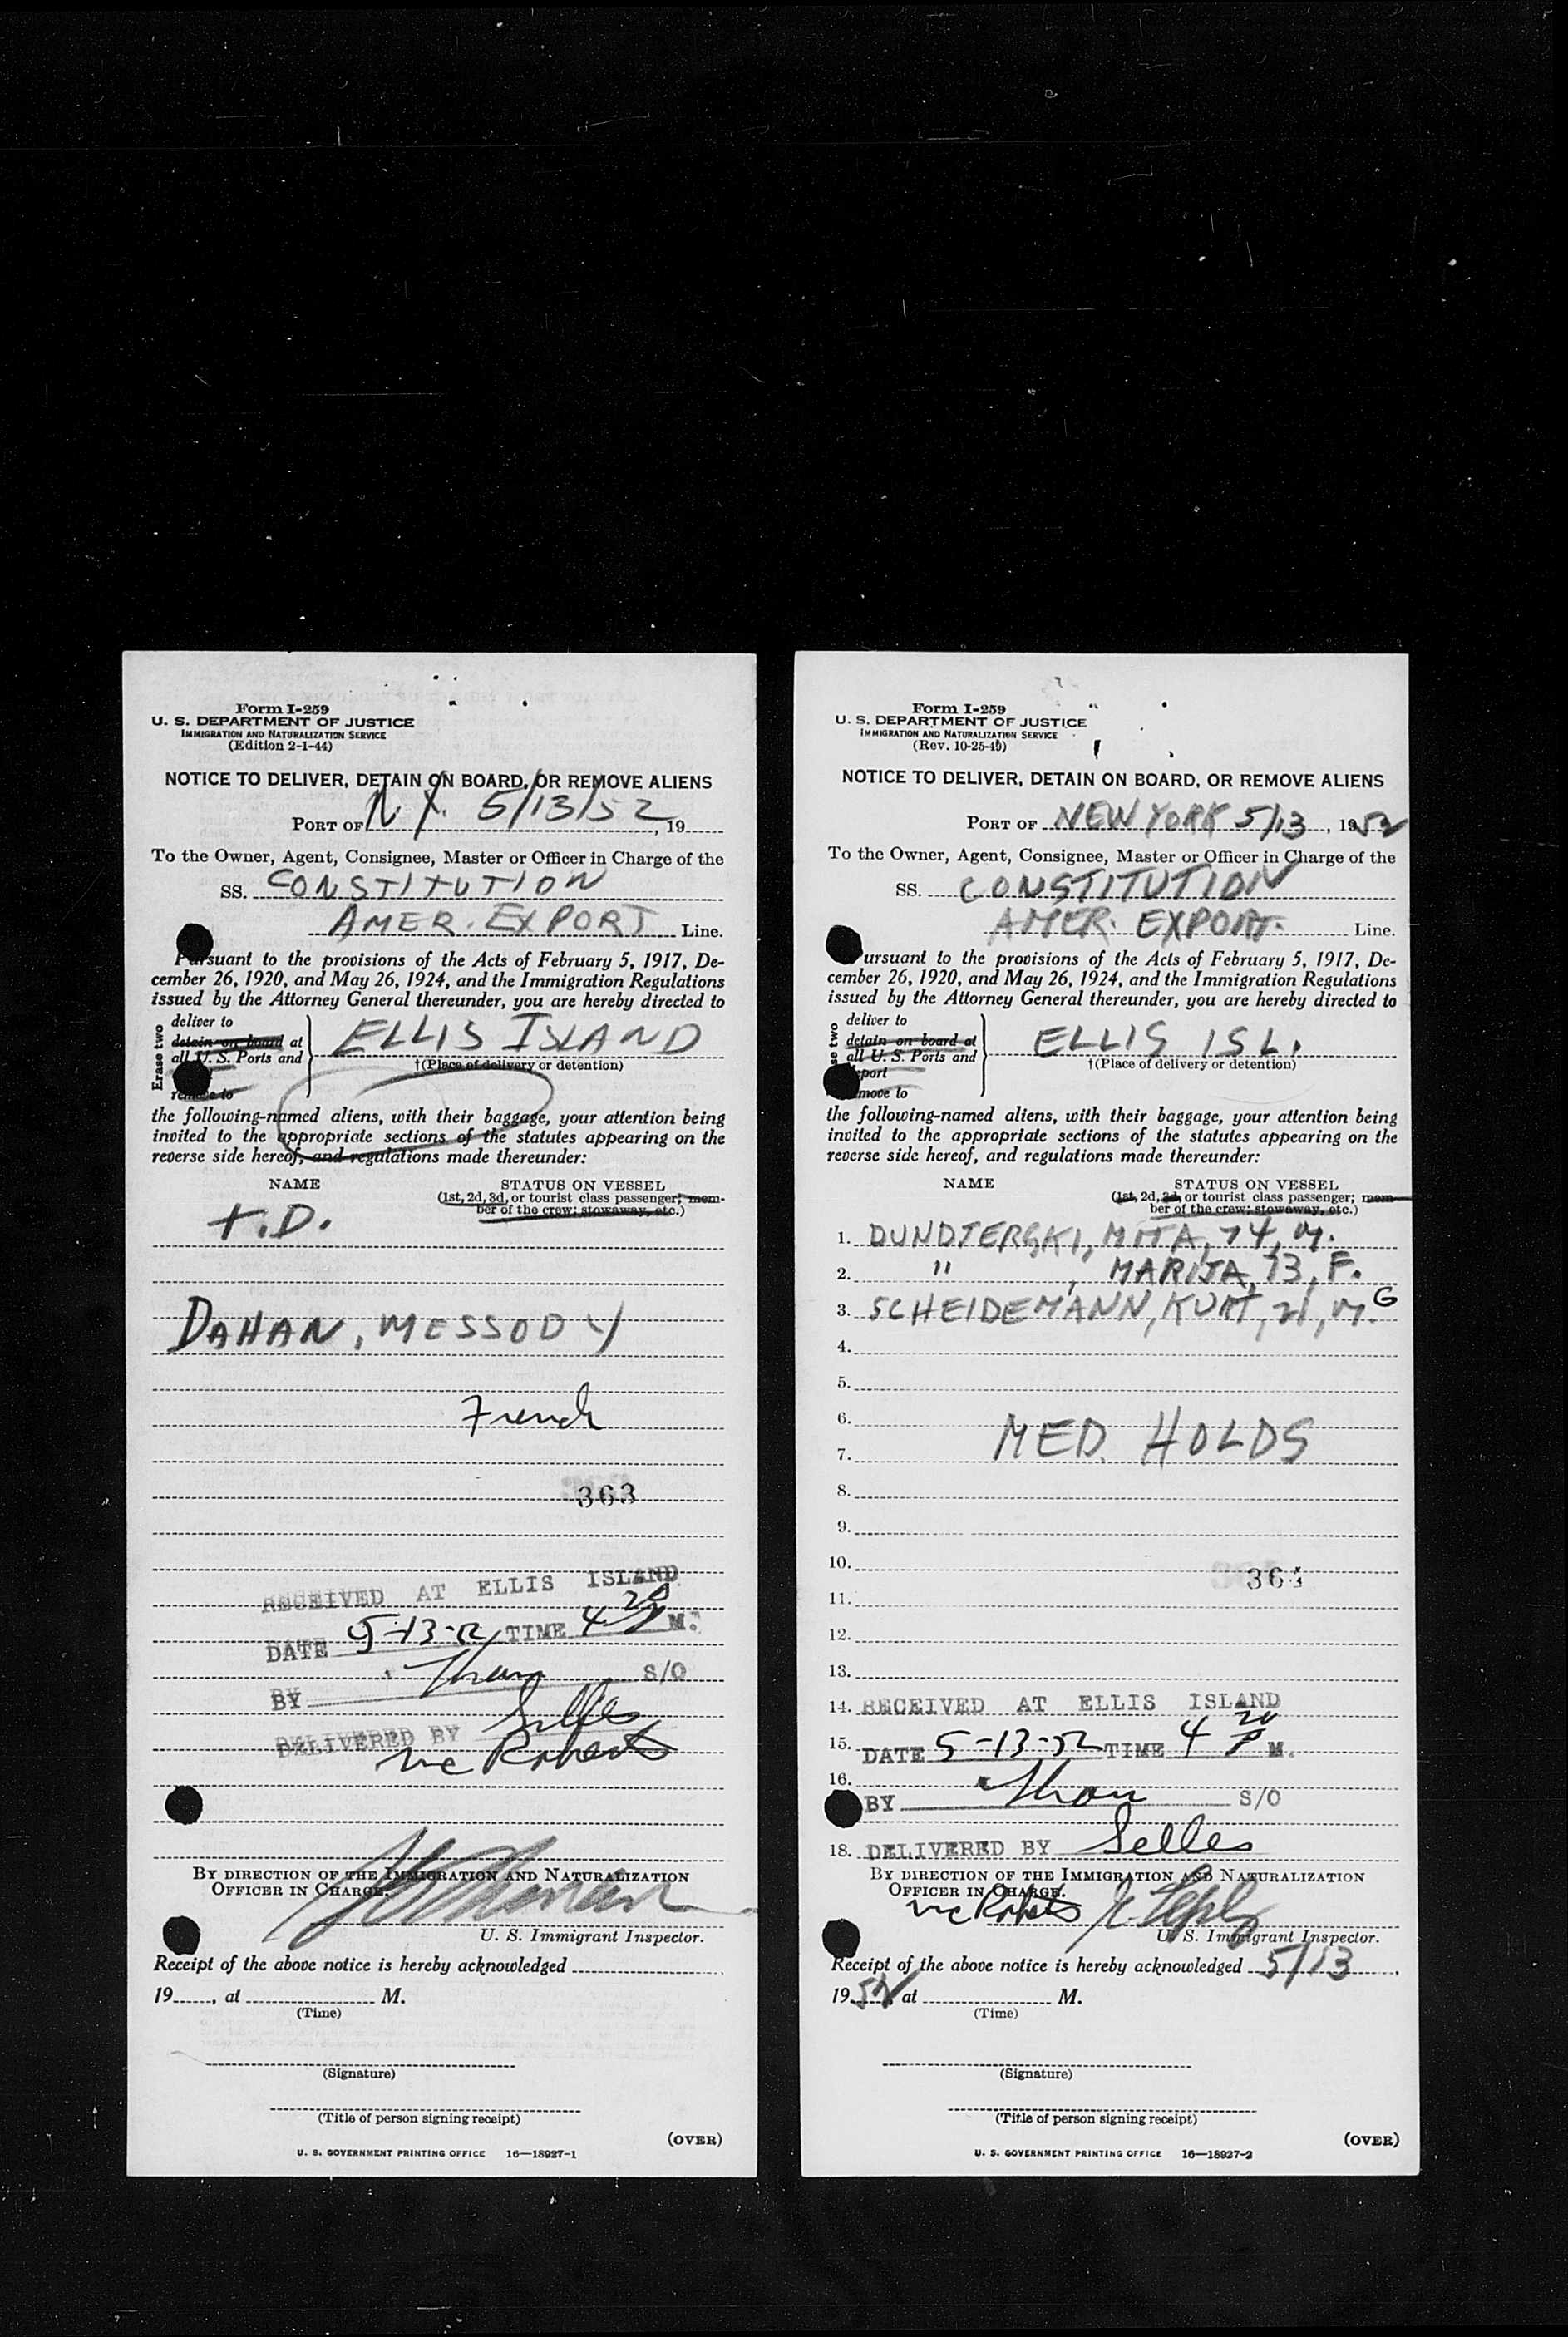 Form I-259
U. S. DEPARTMENT OF JUSTICE
IMMIGRATION AND NATURALIZATION SERVICE
(Edition 2-1-44)
NOTICE TO DELIVER, DETAIN ON BOARD, OR REMOVE ALIENS
PORT OF N.Y. 5/13/52, 19
To the Owner, Agent, Consignee, Master or Officer in Charge of the
SS. CONSTITUTION
AMER. EXPORT Line.
Pursuant to the provisions of the Acts of February 5, 1917, De-
cember 26, 1920, and May 26, 1924, and the Immigration Regulations
issued by the Attorney General thereunder, you are hereby directed to
Erase two
deliver to
detain on board at
all U. S. Ports and
remove to
ELLIS ISLAND
†(Place of delivery or detention)
the following-named aliens, with their baggage, your attention being
invited to the appropriate sections of the statutes appearing on the
reverse side hereof, and regulations made thereunder:
NAME STATUS ON VESSEL
(1st, 2d, 3d, or tourist class passenger; mem-
ber of the crew; stowaway, etc.)
T.D.
DAHAN, MESSODY
French
363
RECEIVED AT ELLIS ISLAND
DATE 5-13-52 TIME 4 20 P M.
BY S/O
DELIVERED BY Selles
McRoberts
BY DIRECTION OF THE IMMIGRATION AND NATURALIZATION
OFFICER IN CHARGE.
U. S. Immigrant Inspector.
Receipt of the above notice is hereby acknowledged
19, at M.
(Time)
(Signature)
(Title of person signing receipt)
(OVER)
U. S. GOVERNMENT PRINTING OFFICE 16—18927-1
Form I-259
U. S. DEPARTMENT OF JUSTICE
IMMIGRATION AND NATURALIZATION SERVICE
(Rev. 10-25-45)
NOTICE TO DELIVER, DETAIN ON BOARD, OR REMOVE ALIENS
PORT OF NEW YORK 5/13, 1952
To the Owner, Agent, Consignee, Master or Officer in Charge of the
SS. CONSTITUTION
AMER. EXPORT. Line.
Pursuant to the provisions of the Acts of February 5, 1917, De-
cember 26, 1920, and May 26, 1924, and the Immigration Regulations
issued by the Attorney General thereunder, you are hereby directed to
se two
deliver to
detain on board at
all U. S. Ports and
port
move to
ELLIS ISL.
†(Place of delivery or detention)
the following-named aliens, with their baggage, your attention being
invited to the appropriate sections of the statutes appearing on the
reverse side hereof, and regulations made thereunder:
NAME STATUS ON VESSEL
(1st, 2d, 3d, or tourist class passenger; mem-
ber of the crew; stowaway, etc.)
1. DUNDJERSKI, MITA, 74, M.
2. " , MARIJA, 73, F.
3. SCHEIDEMANN, KURT, 21, M. G
4.
5.
6.
7. MED. HOLDS
8.
9.
10.
364
11.
12.
13.
14. RECEIVED AT ELLIS ISLAND
15. DATE 5-13-52 TIME 4 20 P M.
16.
BY S/O
18. DELIVERED BY Selles
BY DIRECTION OF THE IMMIGRATION AND NATURALIZATION
OFFICER IN CHARGE.
McRoberts
U. S. Immigrant Inspector.
Receipt of the above notice is hereby acknowledged 5/13,
1952, at M.
(Time)
(Signature)
(Title of person signing receipt)
(OVER)
U. S. GOVERNMENT PRINTING OFFICE 16—18927-2